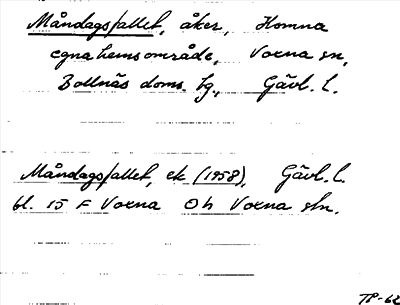 Måndagsfallet, åker, Homna
egnahemsområde, Voxna sn,
Bollnäs doms. lg., Gävl. l.
Måndagsfallet, ek (1958), Gävl. l.
bl. 15 F Voxna Oh Voxna sn.
TP-62